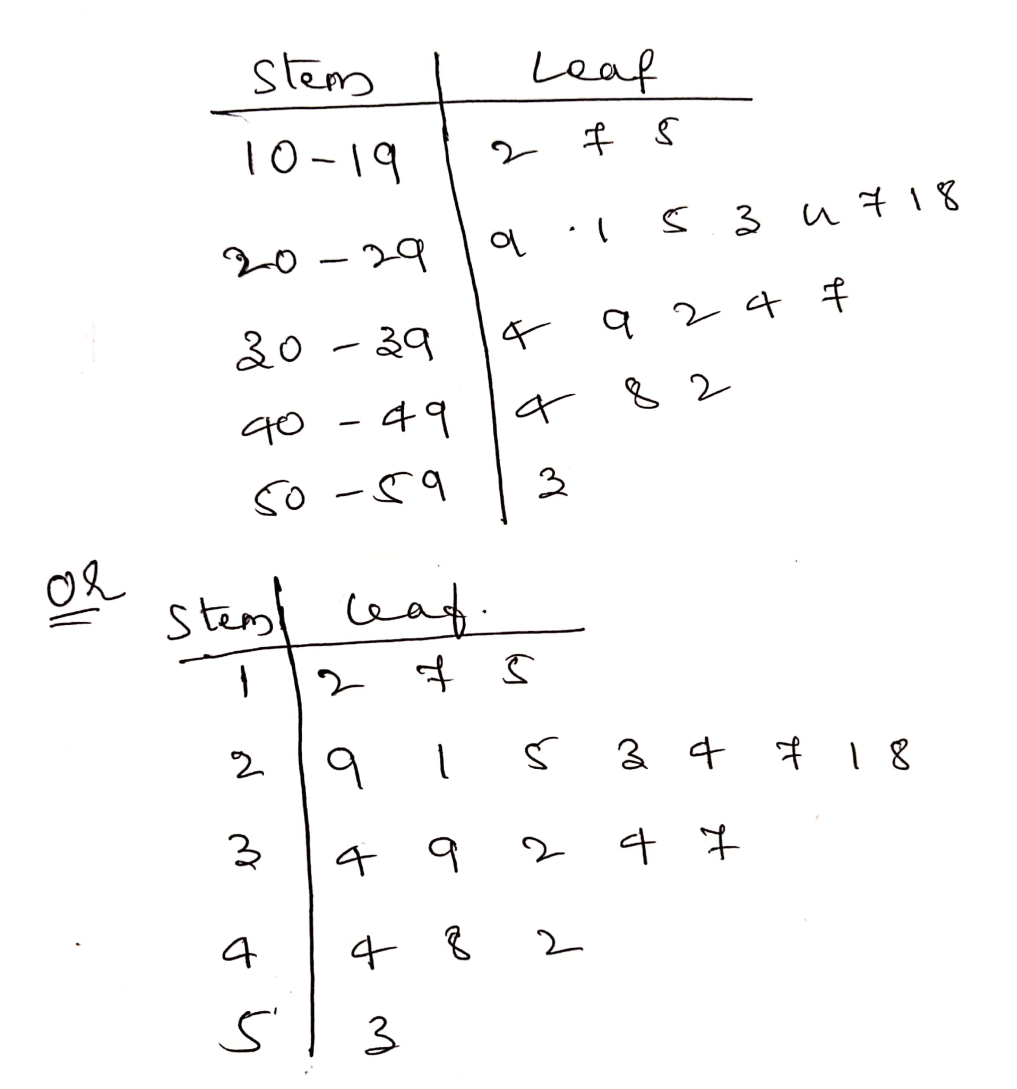 Stem Leaf
10-19 2 7 5
20-29 9 1 5 3 4 7 1 8
30-39 4 9 2 4 7
40-49 4 8 2
50-59 3
OR
Stem Leaf.
1 2 7 5
2 9 1 5 3 4 7 1 8
3 4 9 2 4 7
4 4 8 2
5 3